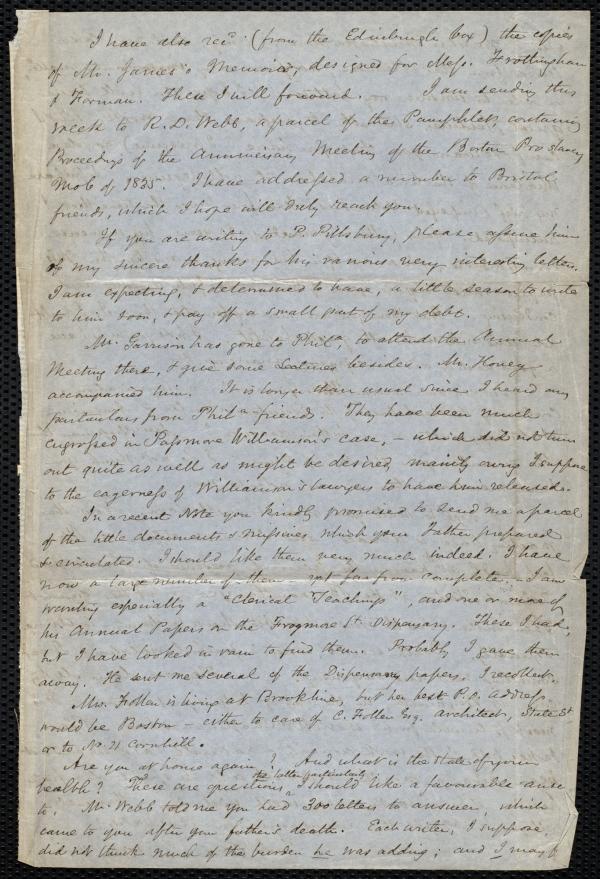 I have also recd. (from the Edinburgh box) the copies
of Mr. James's Memoirs, designed for Messrs. Frothingham
& Forman. These I will forward. I am sending this
week to R. D. Webb, a parcel of the Pamphlet, containing
Proceedings of the Anniversary Meeting of the Boston Pro slavery
Mob of 1835. I have addressed a number to Bristol
friends, which I hope will duly reach you.
If you are writing to P. Pillsbury, please assure him
of my sincere thanks for his various very interesting letters.
I am expecting, & determined to have, a little season to write
to him soon, & pay off a small part of my debt.
Mr. Garrison has gone to Phila. to attend the Annual
Meeting there, & give some Lectures besides. Mr. Hovey
accompanied him. It is longer than usual since I heard any
particulars from Phila. friends. They have been much
engrossed in Passmore Williamson's case, – which did not turn
out quite as well as might be desired, mainly owing I suppose
to the eagerness of Williamson's lawyers to have him released.
In a recent Note you kindly promised to send me a parcel
of the little documents & missives which your Father prepared
& circulated. I should like them very much indeed. I have
now a large number of them – yet far from complete. – I am
wanting especially a "Clerical Teachings", and one or more of
his Annual Papers on the Frogmore St. Dispensary. These I had,
but I have looked in vain to find them. Probably I gave them
away. He sent me several of the Dispensary papers, I recollect.
Mrs. Follen is living at Brookline, but her best P.O. address
would be Boston – either to care of C. Follen Esq. architect, State St
or to No. 21 Cornhill.
Are you at home again? And what is the state of your
health? These are questions, the latter particularly I should like a favourable answer
to. Mr. Webb told me you had 300 letters to answer, which
came to you after your father's death. Each writer, I suppose,
did not think much of the burden he was adding; and I may